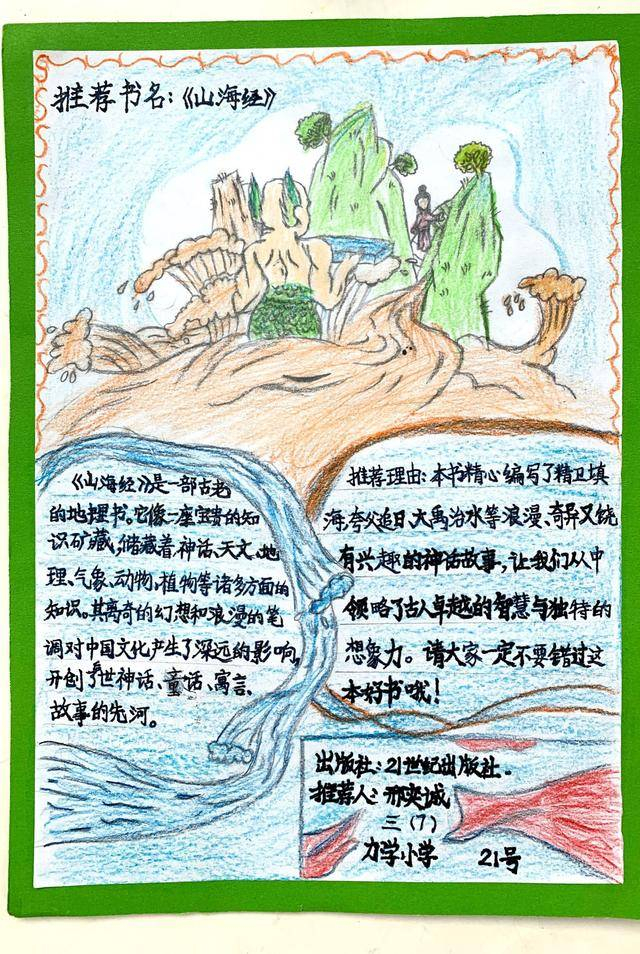 推荐书名:《山海经》
《山海经》是一部古老
的地理书。它像一座宝贵的知
识矿藏,储藏着神话、天文、地
理、气象、动物,植物等诸多方面的
知识。其离奇的幻想和浪漫的笔
调对中国文化产生了深远的影响,
开创了后世神话、童话、寓言、
故事的先河。
推荐理由:本书精心编写了精卫填
海,夸父追日、大禹治水等浪漫、奇异又饶
有兴趣的神话故事,让我们从中
领略了古人卓越的智慧与独特的
想象力。请大家一定不要错过这
本好书哦!
出版社:21世纪出版社.
推荐人:邢奕诚
三(7)
力学小学 21号